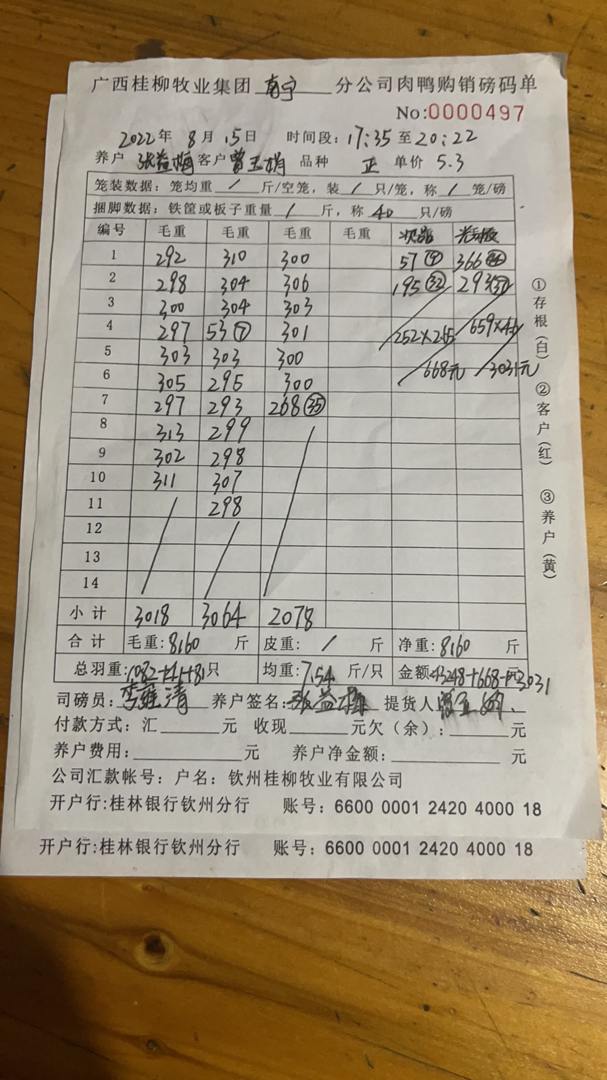 广西桂柳牧业集团 南宁 分公司肉鸭购销磅码单
No:0000497
2022年 8月 15日 时间段: 17:35 至 20:22
养户 张益梅 客户 曾玉娟 品种 正 单价 5.3
笼装数据: 笼均重 / 斤/空笼, 装 / 只/笼, 称 / 笼/磅
捆脚数据: 铁筐或板子重量 / 斤, 称 40 只/磅
编号 毛重 毛重 毛重 毛重 次品
1 292 310 300 57 366
2 298 304 306 195 293
3 300 304 303
4 297 53⑦ 301 252×265 659×46
5 303 303 300
6 305 295 300 668元 3031元
7 297 293 268㉟
8 313 299
9 302 298
10 311 307
11 / 298
12
13
14
小计 3018 3064 2078
合计 毛重: 8160 斤 皮重: / 斤 净重: 8160 斤
总羽重: 1082+41+81只 均重: 7.54 斤/只 金额: 43248+668+3031
司磅员: 养户签名: 张益梅 提货人
付款方式: 汇 元 收现 元欠(余): 元
养户费用: 元 养户净金额: 元
公司汇款帐号: 户名: 钦州桂柳牧业有限公司
开户行:桂林银行钦州分行 账号: 6600 0001 2420 4000 18
开户行:桂林银行钦州分行 账号: 6600 0001 2420 4000 18
①存根(白) ②客户(红) ③养户(黄)